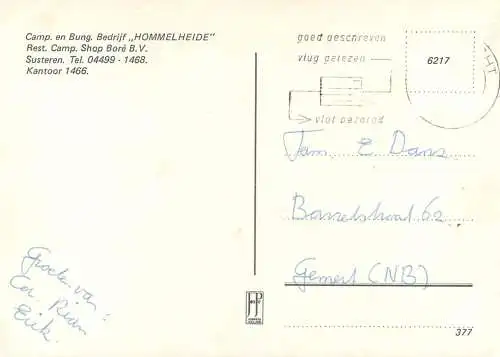 Camp. en Bung. Bedrijf „HOMMELHEIDE"
Rest. Camp. Shop Boré B.V.
Susteren. Tel. 04499 - 1468.
Kantoor 1466.
goed geschreven
vlug gelezen
vlot bezorgd
HT
6217
Fam. E Dans
62
Gemert (NB)
Groeten van:
Cor, Rian
Erik.
377